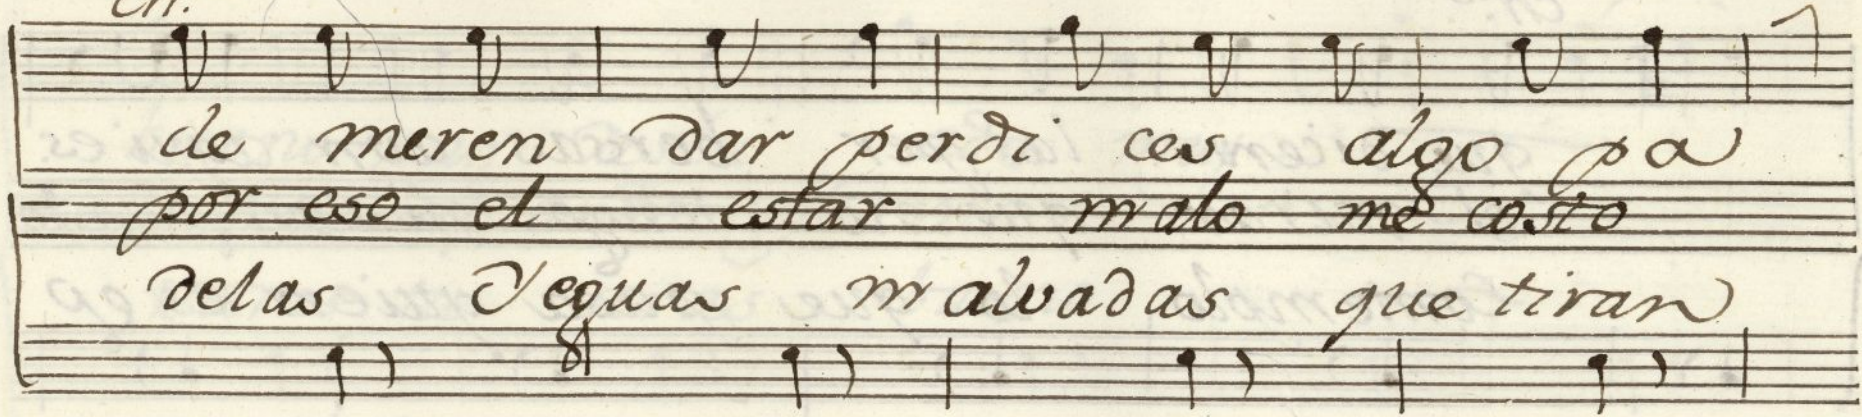 de meren dar perdi ces algo pa
por eso el estar malo me costo
delas Yeguas malvadas que tiran